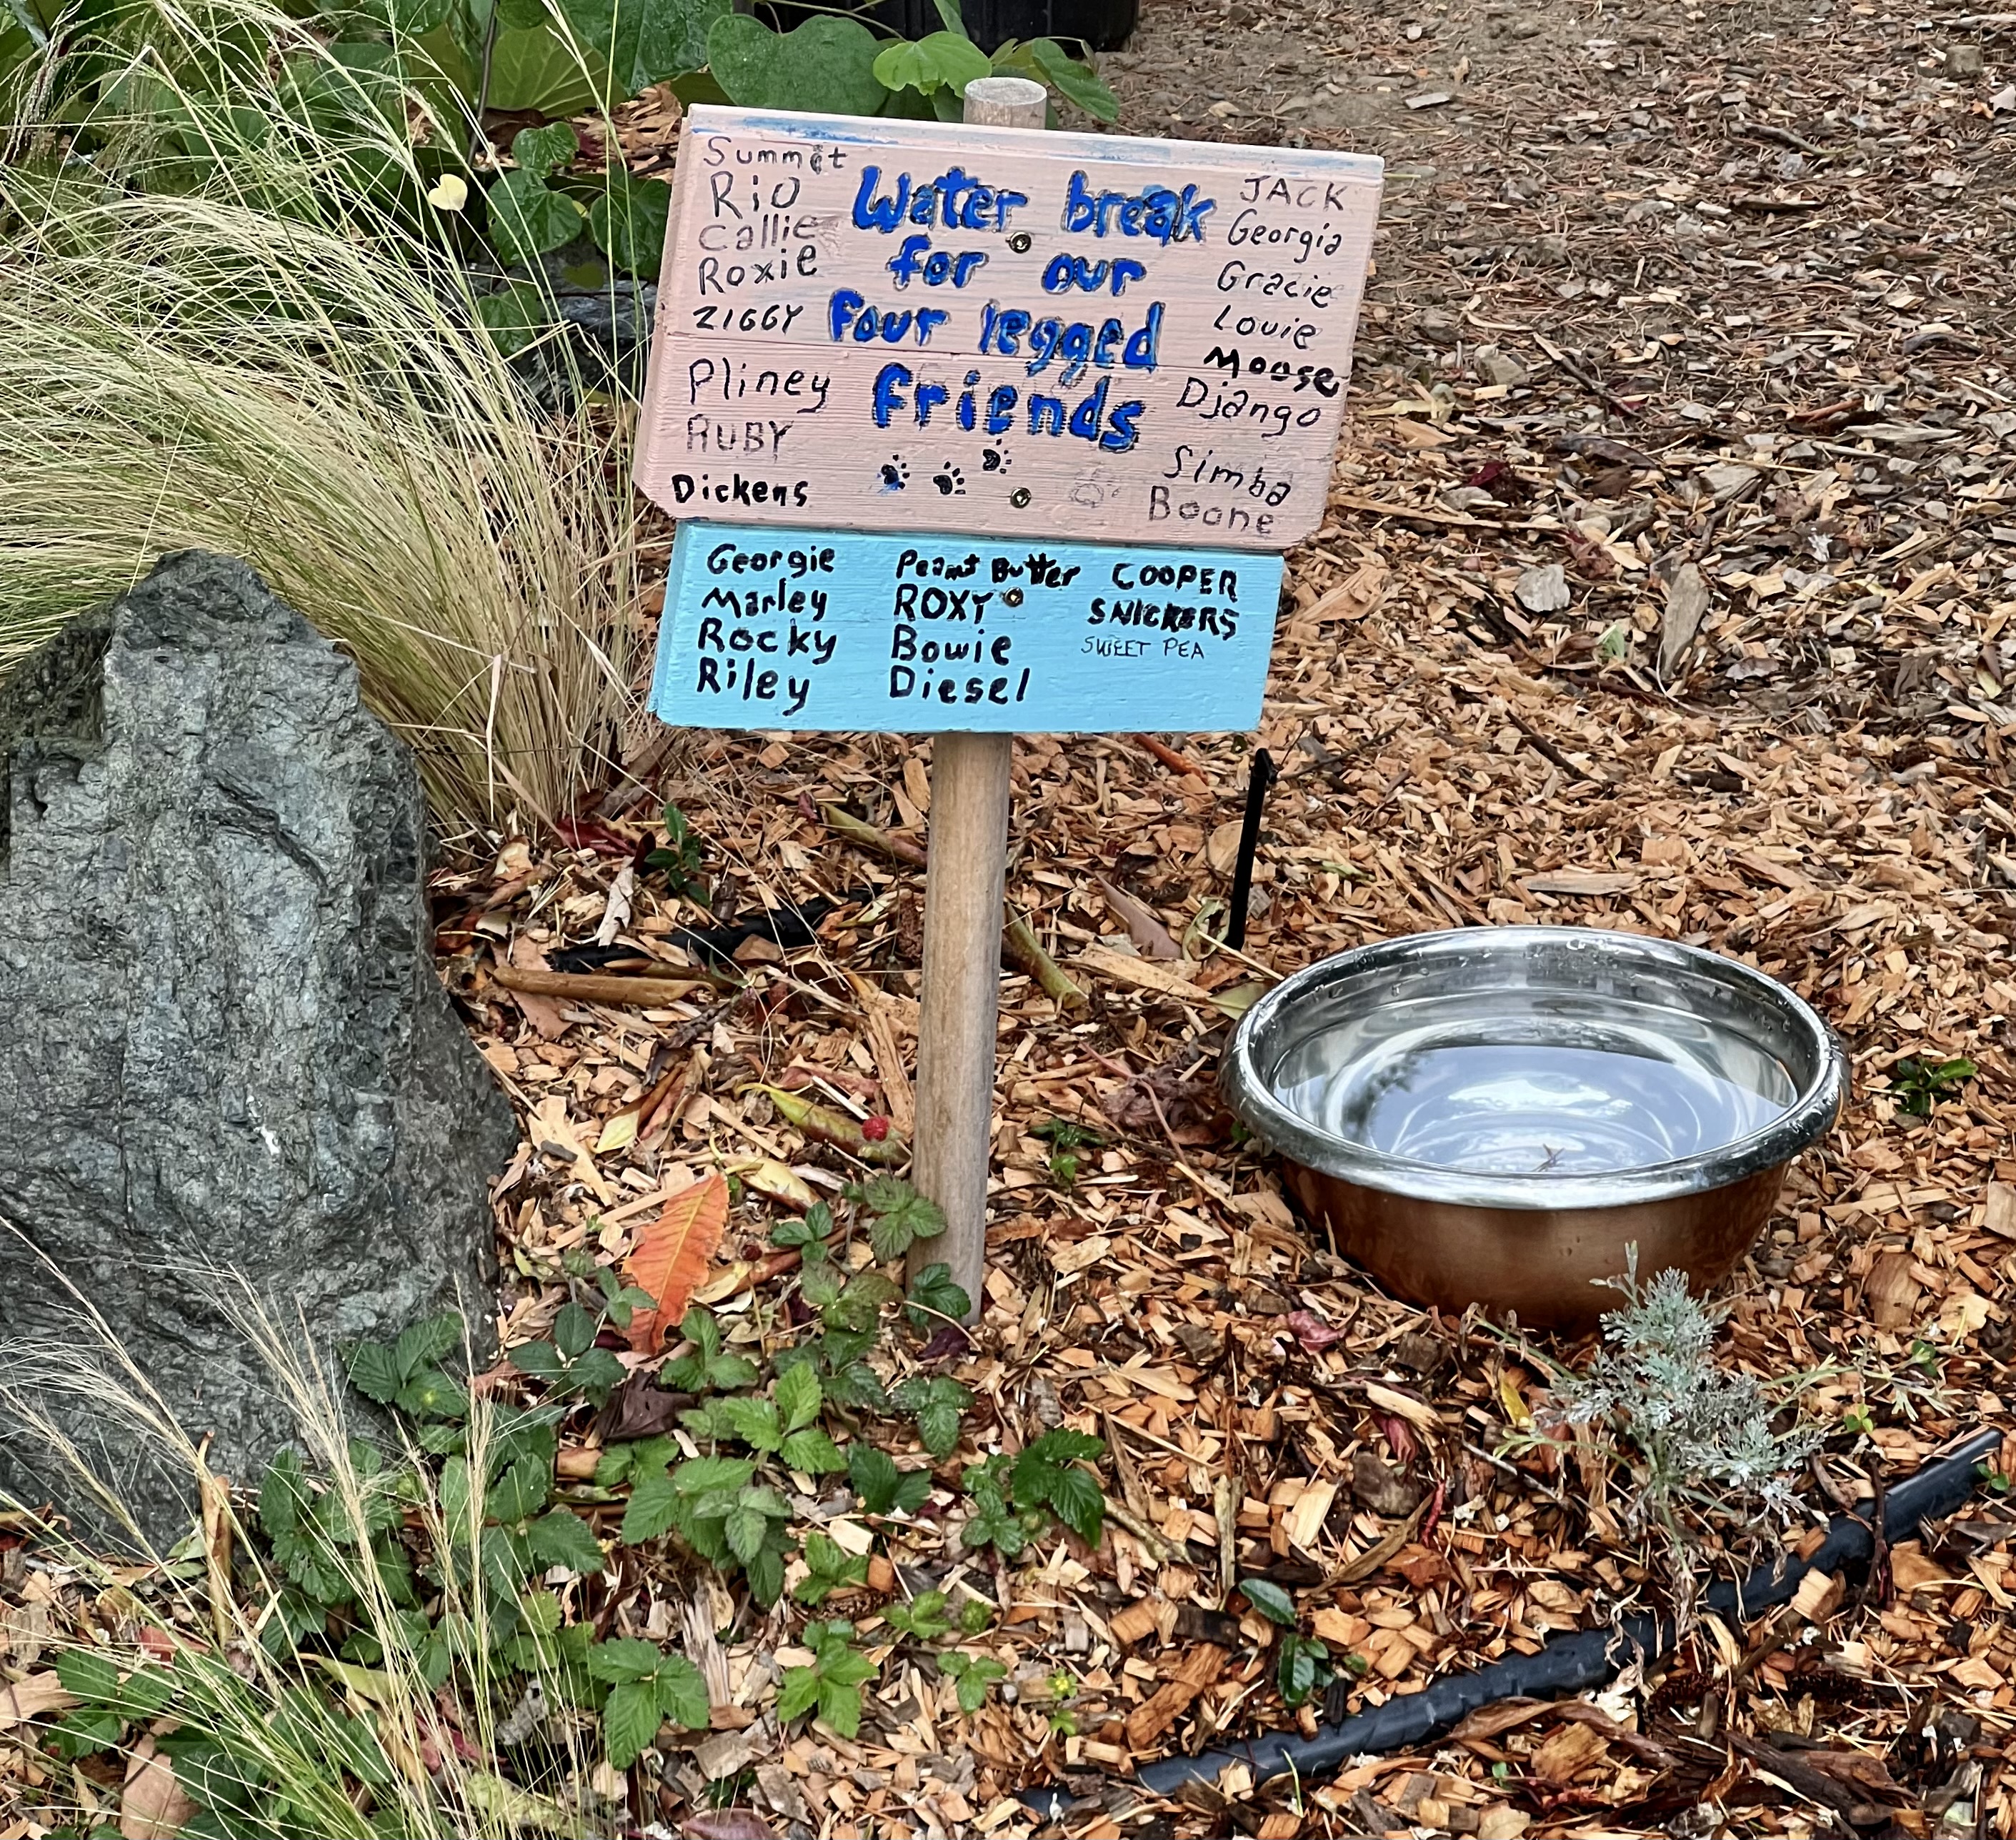 Summit
Rio
Callie
Roxie
ZIGGY
Pliney
RUBY
Dickens
Water break
for our
four legged
friends
JACK
Georgia
Gracie
Louie
Moose
Django
Simba
Boone
Georgie
Marley
Rocky
Riley
Peanut Butter
ROXY
Bowie
Diesel
COOPER
SNICKERS
SWEET PEA